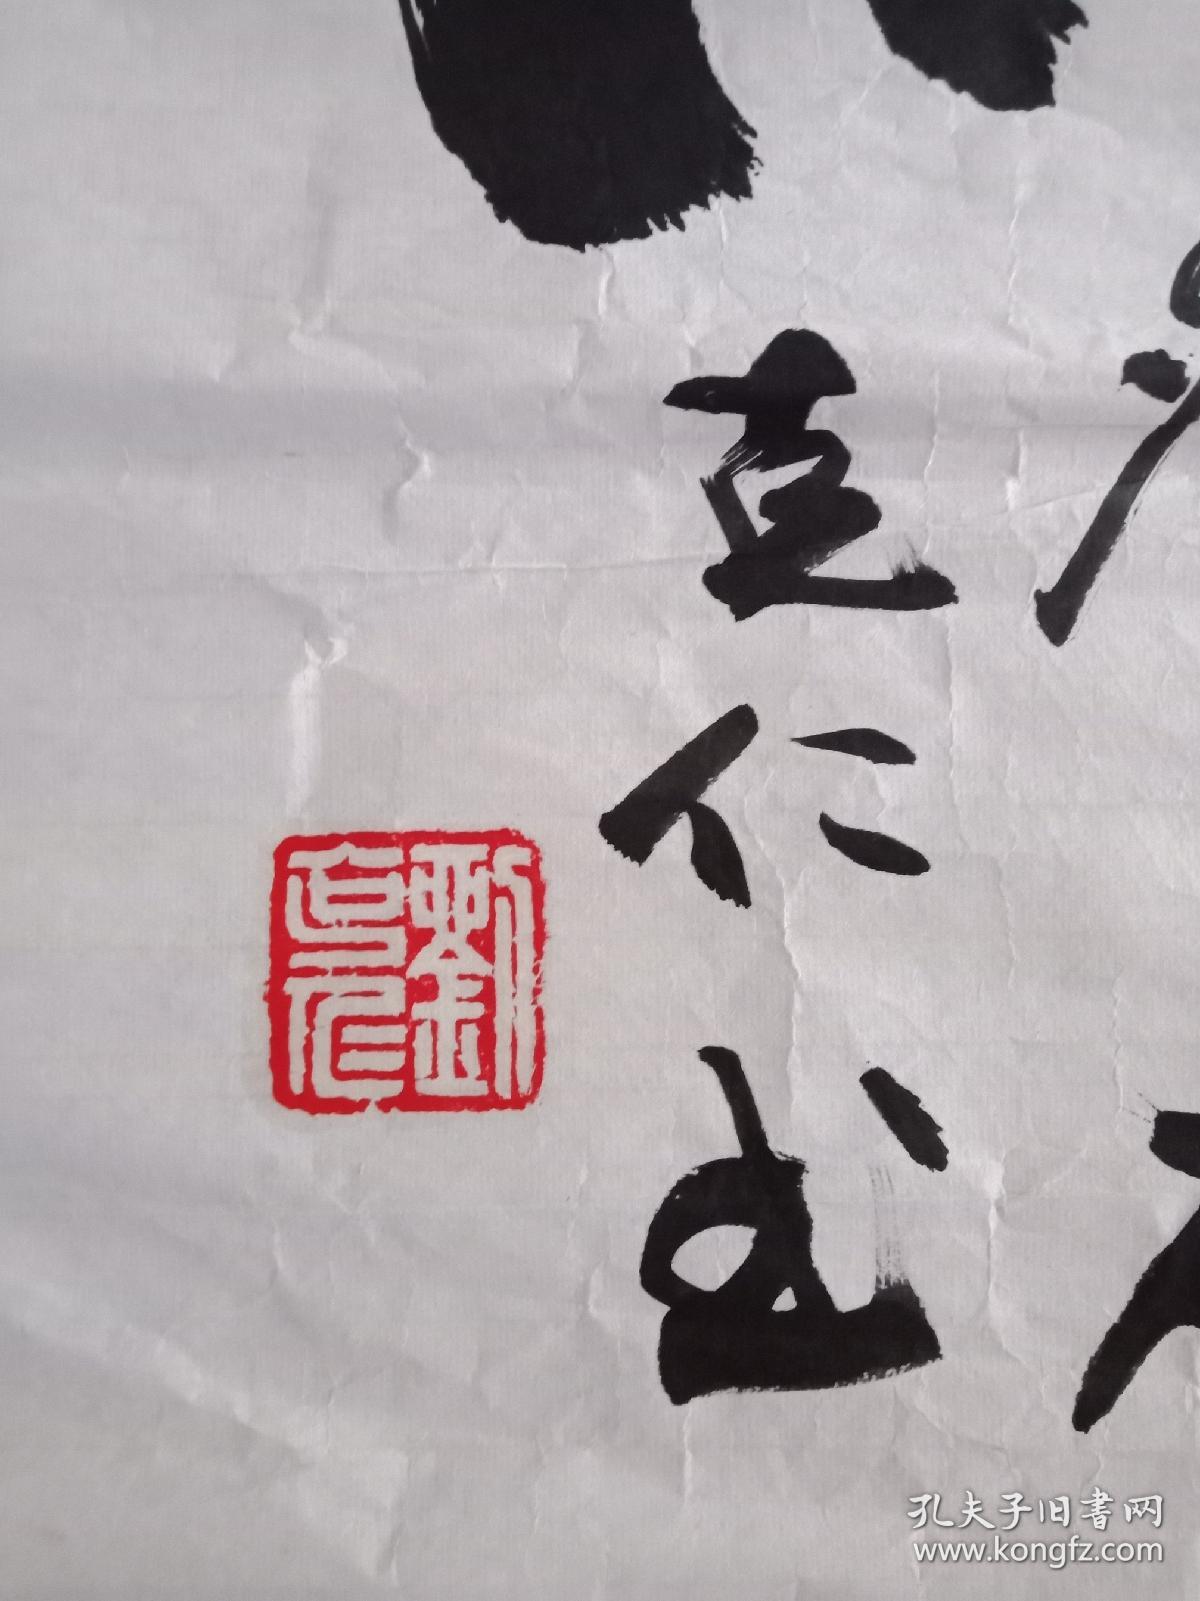 直仁书
劉直仁
孔夫子旧书网
www.kongfz.com